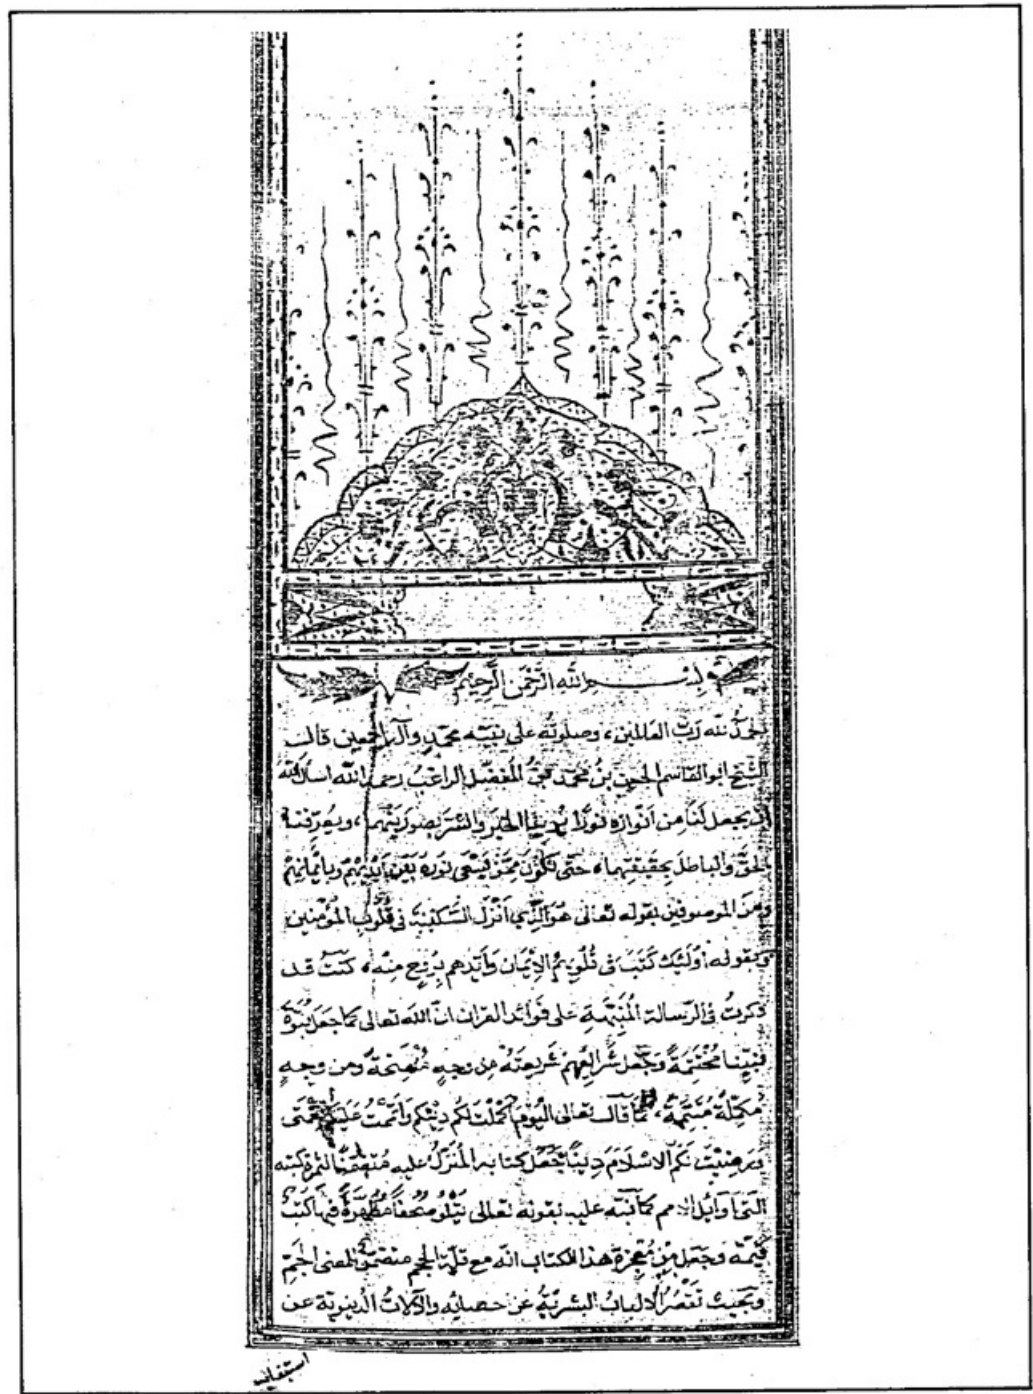 بسم الله الرحمن الرحيم
الحمد لله رب العالمين، وصلوته على نبيه محمد وآله اجمعين قال
الشيخ ابو القاسم الحسين بن محمد بن المفضل الراغب رحمه الله اسال الله
ان يجعل لنا من انواره نورًا يرينا الخير والشر بصورتيهما، ويعرفنا
الحق والباطل بحقيقتهما، حتى نكون ممن يسعى نوره بين ايديهم وبايمانهم
ومن الموصوفين بقوله تعالى هو الذي انزل السكينة في قلوب المؤمنين
وبقوله اولئك كتب في قلوبهم الايمان وايدهم بروح منه، كنت قد
ذكرت في الرسالة المنبهة على فوائد القران ان الله تعالى كما جعل نبوة
نبينا مختتمة وجعل شرائعهم شريعته من وجه منتسخة ومن وجه
مكملة متممة، كما قال تعالى اليوم اكملت لكم دينكم واتممت عليكم نعمتى
ورضيت لكم الاسلام دينًا جعل كتابه المنزل عليه متضمنًا لثمرة كتبه
التي اوائل الامم كما نبه عليه بقوله تعالى يتلو صحفًا مطهرة فيها كتب
قيمة وجعل من معجزة هذا الكتاب انه مع قلة الحجم متضمن للمعنى الجم
وبحيث تقصر الالباب البشرية عن احصائه والآلات الدنيوية عن
استيفائه